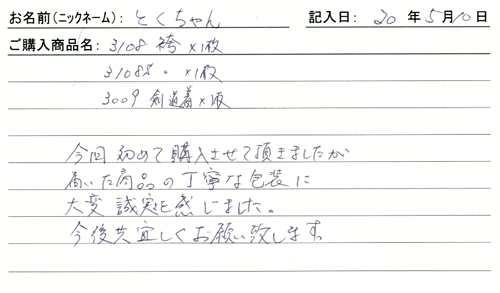 お名前(ニックネーム): とくちゃん 記入日: 20年5月10日
ご購入商品名: 3108 袴 ×1枚
3108S 〃 ×1枚
3009 剣道着×1枚
今回初めて購入させて頂きましたが
届いた商品の丁寧な包装に
大変誠実を感じました。
今後共宜しくお願い致します。